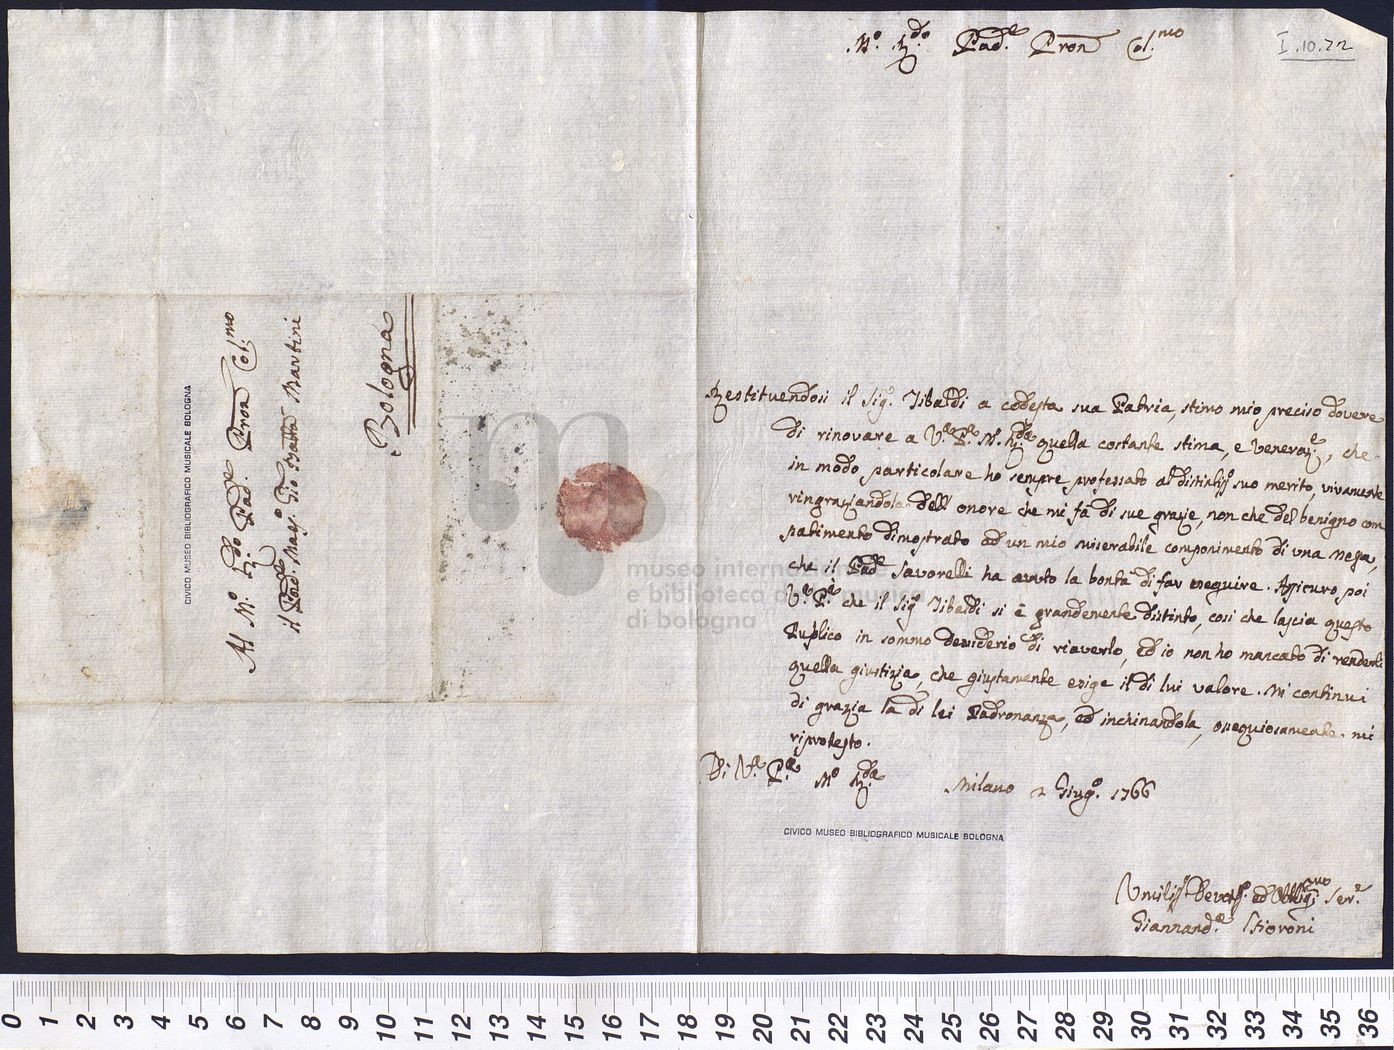 M.º R.do Pad.e Pron Col.mo
I.10.22
Restituendosi il Sig.r Tibaldi a codesta sua Patria, stimo mio preciso dovere
di rinovare a V.a P.a M.º R.da quella costante stima, e veneraz.e, che
in modo particolare ho sempre professato al distintiss.º suo merito, vivamente
ringraziandola dell onore che mi fà di sue grazie, non che del benigno com
patimento dimostrato ad un mio miserabile componimento di una Messa,
che il Pad.e Savorelli ha avuto la bontà di far eseguire. Assicuro poi
V.a P.a che il Sig.r Tibaldi si è grandemente distinto, così che lascia questo
Publico in sommo desiderio di riaverlo, ed io non ho mancato di renderli
quella giustizia, che giustamente esige il di lui valore. Mi continui
di grazia la di lei Padronanza, ed inchinandola, ossequiosamente mi
riprotesto.
Di V.a P.a M.º R.da
Milano 2 Giug.º 1766
CIVICO MUSEO BIBLIOGRAFICO MUSICALE BOLOGNA
Umiliss.º Devotiss.º ed Obblig.mo Ser.e
Giannand.a Fioroni
Al M.º R.do Pad.e Pron Col.mo
il Pad.e Maes.º Gio Batta Martini
Bologna
CIVICO MUSEO BIBLIOGRAFICO MUSICALE BOLOGNA
museo internazionale
e biblioteca della musica
di bologna
0 1 2 3 4 5 6 7 8 9 10 11 12 13 14 15 16 17 18 19 20 21 22 23 24 25 26 27 28 29 30 31 32 33 34 35 36